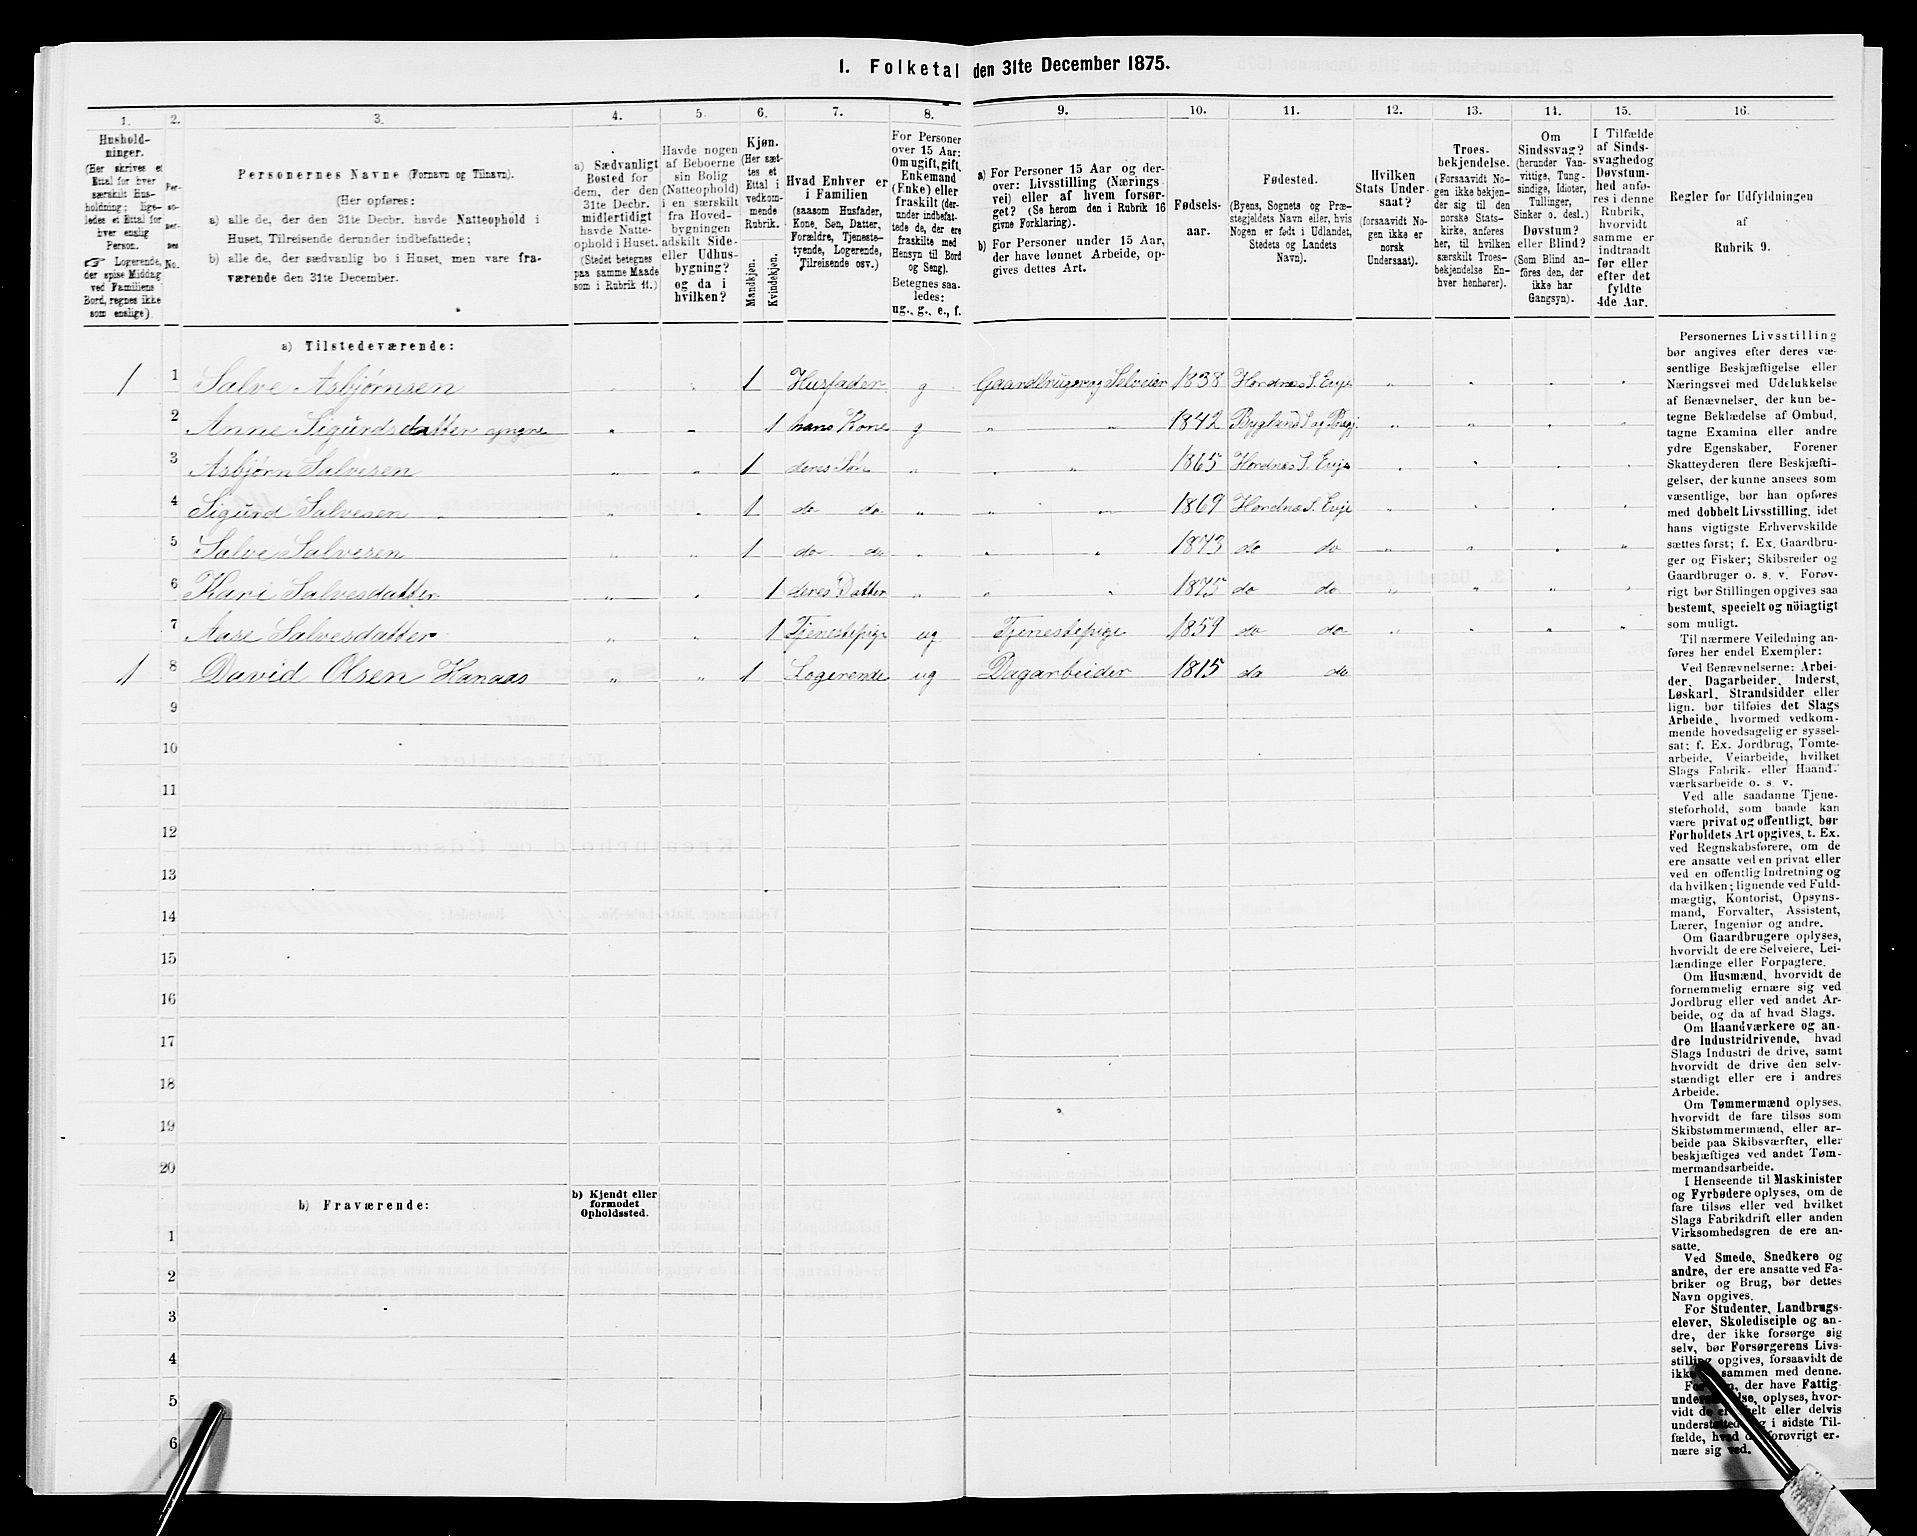 1. Folketal den 31te December 1875.
1. 2. 3. 4. 5. 6. 7. 8. 9. 10. 11. 12. 13. 14. 15. 16.
Hushold-
ninger.
(Her skrives et
Ettal for hver
særskilt Hus-
holdning; lige-
ledes et Ettal for
hver enslig
Person.
☞ Logerende,
der spise Middag
ved Familiens
Bord, regnes ikke
som enslige).
Per-
so-
ner-
nes
No.
Personernes Navne (Fornavn og Tilnavn).
(Her opføres:
a) alle de, der den 31te Decbr. havde Natteophold i
Huset, Tilreisende derunder indbefattede;
b) alle de, der sædvanlig bo i Huset, men vare fra-
værende den 31te December.
a) Sædvanligt
Bosted for
dem, der den
31te Decbr.
midlertidigt
havde Natte-
ophold i Huset.
(Stedet betegnes
paa samme Maade
som i Rubrik 11.)
Havde nogen
af Beboerne
sin Bolig
(Natteophold)
i en særskilt
fra Hoved-
bygningen
adskilt Side-
eller Udhus-
bygning?
og da i
hvilken?
Kjøn.
(Her sæt-
tes et
Ettal i
vedkom-
mende
Rubrik.
Mandkjøn.
Kvindekjøn.
Hvad Enhver er
i Familien
(saasom Husfader,
Kone, Søn, Datter,
Forældre, Tjeneste-
tyende, Logerende,
Tilreisende osv.)
For Personer
over 15 Aar:
Om ugift, gift,
Enkemand
(Enke) eller
fraskilt (der-
under indbefat-
tede de, der ere
fraskilte med
Hensyn til Bord
og Seng).
Betegnes saa-
ledes:
ug., g., e., f.
a) For Personer 15 Aar og der-
over: Livsstilling (Nærings-
vei) eller af hvem forsør-
get? (Se herom den i Rubrik 16
givne Forklaring).
b) For Personer under 15 Aar,
der have lønnet Arbeide, op-
gives dettes Art.
Fødsels-
aar.
Fødested.
(Byens, Sognets og Præ-
stegjeldets Navn eller, hvis
Nogen er født i Udlandet,
Stedets og Landets
Navn).
Hvilken
Stats Under-
saat?
(forsaavidt No-
gen ikke er
norsk
Undersaat).
Troes-
bekjendelse.
(Forsaavidt No-
gen ikke bekjen-
der sig til den
norske Stats-
kirke, anføres
her, til hvilken
særskilt Troes-
bekjendelse En-
hver henhører).
Om
Sindssvag?
(herunder Van-
vittige, Tung-
sindige, Idioter,
Tullinger,
Sinker o. desl.)
Døvstum?
eller Blind?
(Som Blind an-
føres den, der
ikke har
Gangsyn).
I Tilfælde
af Sinds-
svaghed og
Døvstum-
hed anfø-
res i denne
Rubrik,
hvorvidt
samme er
indtraadt
før eller
efter det
fyldte
4de Aar.
Regler for Udfyldningen
af
Rubrik 9.
a) Tilstedeværende:
1 1 Salve Asbjørnsen 1 Husfader g Gaardbruger og Selveier 1838 Hordnæs S. Evje
2 Anne Sigurdsdatter 1 hans Kone g 1842 Bygland S. og
3 Asbjørn Salvesen 1 deres Søn 1865 Hordnæs S. Evje
4 Sigurd Salvesen 1 do do 1869 Hordnæs S. Evje
5 Salve Salvesen 1 do do 1873 do do
6 Kari Salvesdatter 1 deres Datter 1875 do do
7 Aase Salvesdatter 1 Tjenestepige ug Tjenestepige 1859 do do
1 8 David Olsen Hanaas 1 Logerende ug Dagarbeider 1815 do do
9
10
11
12
13
14
15
16
17
18
19
20
b) Fraværende:
b) Kjendt eller
formodet
Opholdssted.
1
2
3
4
5
6
Personernes Livsstilling
bør angives efter deres væ-
sentlige Beskjæftigelse eller
Næringsvei med Udelukkelse
af Benævnelser, der kun be-
tegne Beklædelse af Ombud,
tagne Examina eller andre
ydre Egenskaber. Forener
Skatteyderen flere Beskjæfti-
gelser, der kunne ansees som
væsentlige, bør han opføres
med dobbelt Livsstilling, idet
hans vigtigste Erhvervskilde
sættes først; f. Ex. Gaardbru-
ger og Fisker; Skibsreder og
Gaardbruger o. s. v. Forøv-
rigt bør Stillingen opgives saa
bestemt, specielt og nöiagtigt
som muligt.
Til nærmere Veiledning an-
føres her endel Exempler:
Ved Benævnelserne: Arbei-
der, Dagarbeider, Inderst,
Løskarl, Strandsidder eller
lign. bør tilføies det Slags
Arbeide, hvormed vedkom-
mende hovedsagelig er syssel-
sat; f. Ex. Jordbrug, Tomte-
arbeide, Veiarbeide, hvilket
Slags Fabrik- eller Haand-
værksarbeide o. s. v.
Ved alle saadanne Tjene-
steforhold, som baade kan
være privat og offentligt, bør
Forholdets Art opgives, t. Ex.
ved Regnskabsførere, om de
ere ansatte ved en privat eller
ved en offentlig Indretning og
da hvilken; lignende ved Fuld-
mægtig, Kontorist, Opsyns-
mand, Forvalter, Assistent,
Lærer, Ingeniør og andre.
Om Gaardbrugere oplyses,
hvorvidt de ere Selveiere, Lei-
lændinge eller Forpagtere.
Om Husmænd, hvorvidt de
fornemmelig ernære sig ved
Jordbrug eller ved andet Ar-
beide, og da af hvad Slags.
Om Haandværkere og an-
dre Industridrivende, hvad
Slags Industri de drive, samt
hvorvidt de drive den selv-
stændigt eller ere i andres
Arbeide.
Om Tømmermænd oplyses,
hvorvidt de fare tilsøs som
Skibstømmermænd, eller ar-
beide paa Skibsværfter, eller
beskjæftiges ved andet Tøm-
mermandsarbeide.
I Henseende til Maskinister
og Fyrbødere oplyses, om de
fare tilsøs eller ved hvilket
Slags Fabrikdrift eller anden
Virksomhedsgren de ere an-
satte.
Ved Smede, Snedkere og
andre, der ere ansatte ved Fa-
briker og Brug, bør dettes
Navn opgives.
For Studenter, Landbrugs-
elever, Skoledisciple og an-
dre, der ikke forsørge sig
selv, bør Forsørgerens Livs-
stilling opgives, forsaavidt de
ikke sammen med denne.
der have Fattig-
oplyses, hvor-
vidt de eller delvis
i sidste Til-
fælde, forøvrigt er-
nære sig ved.